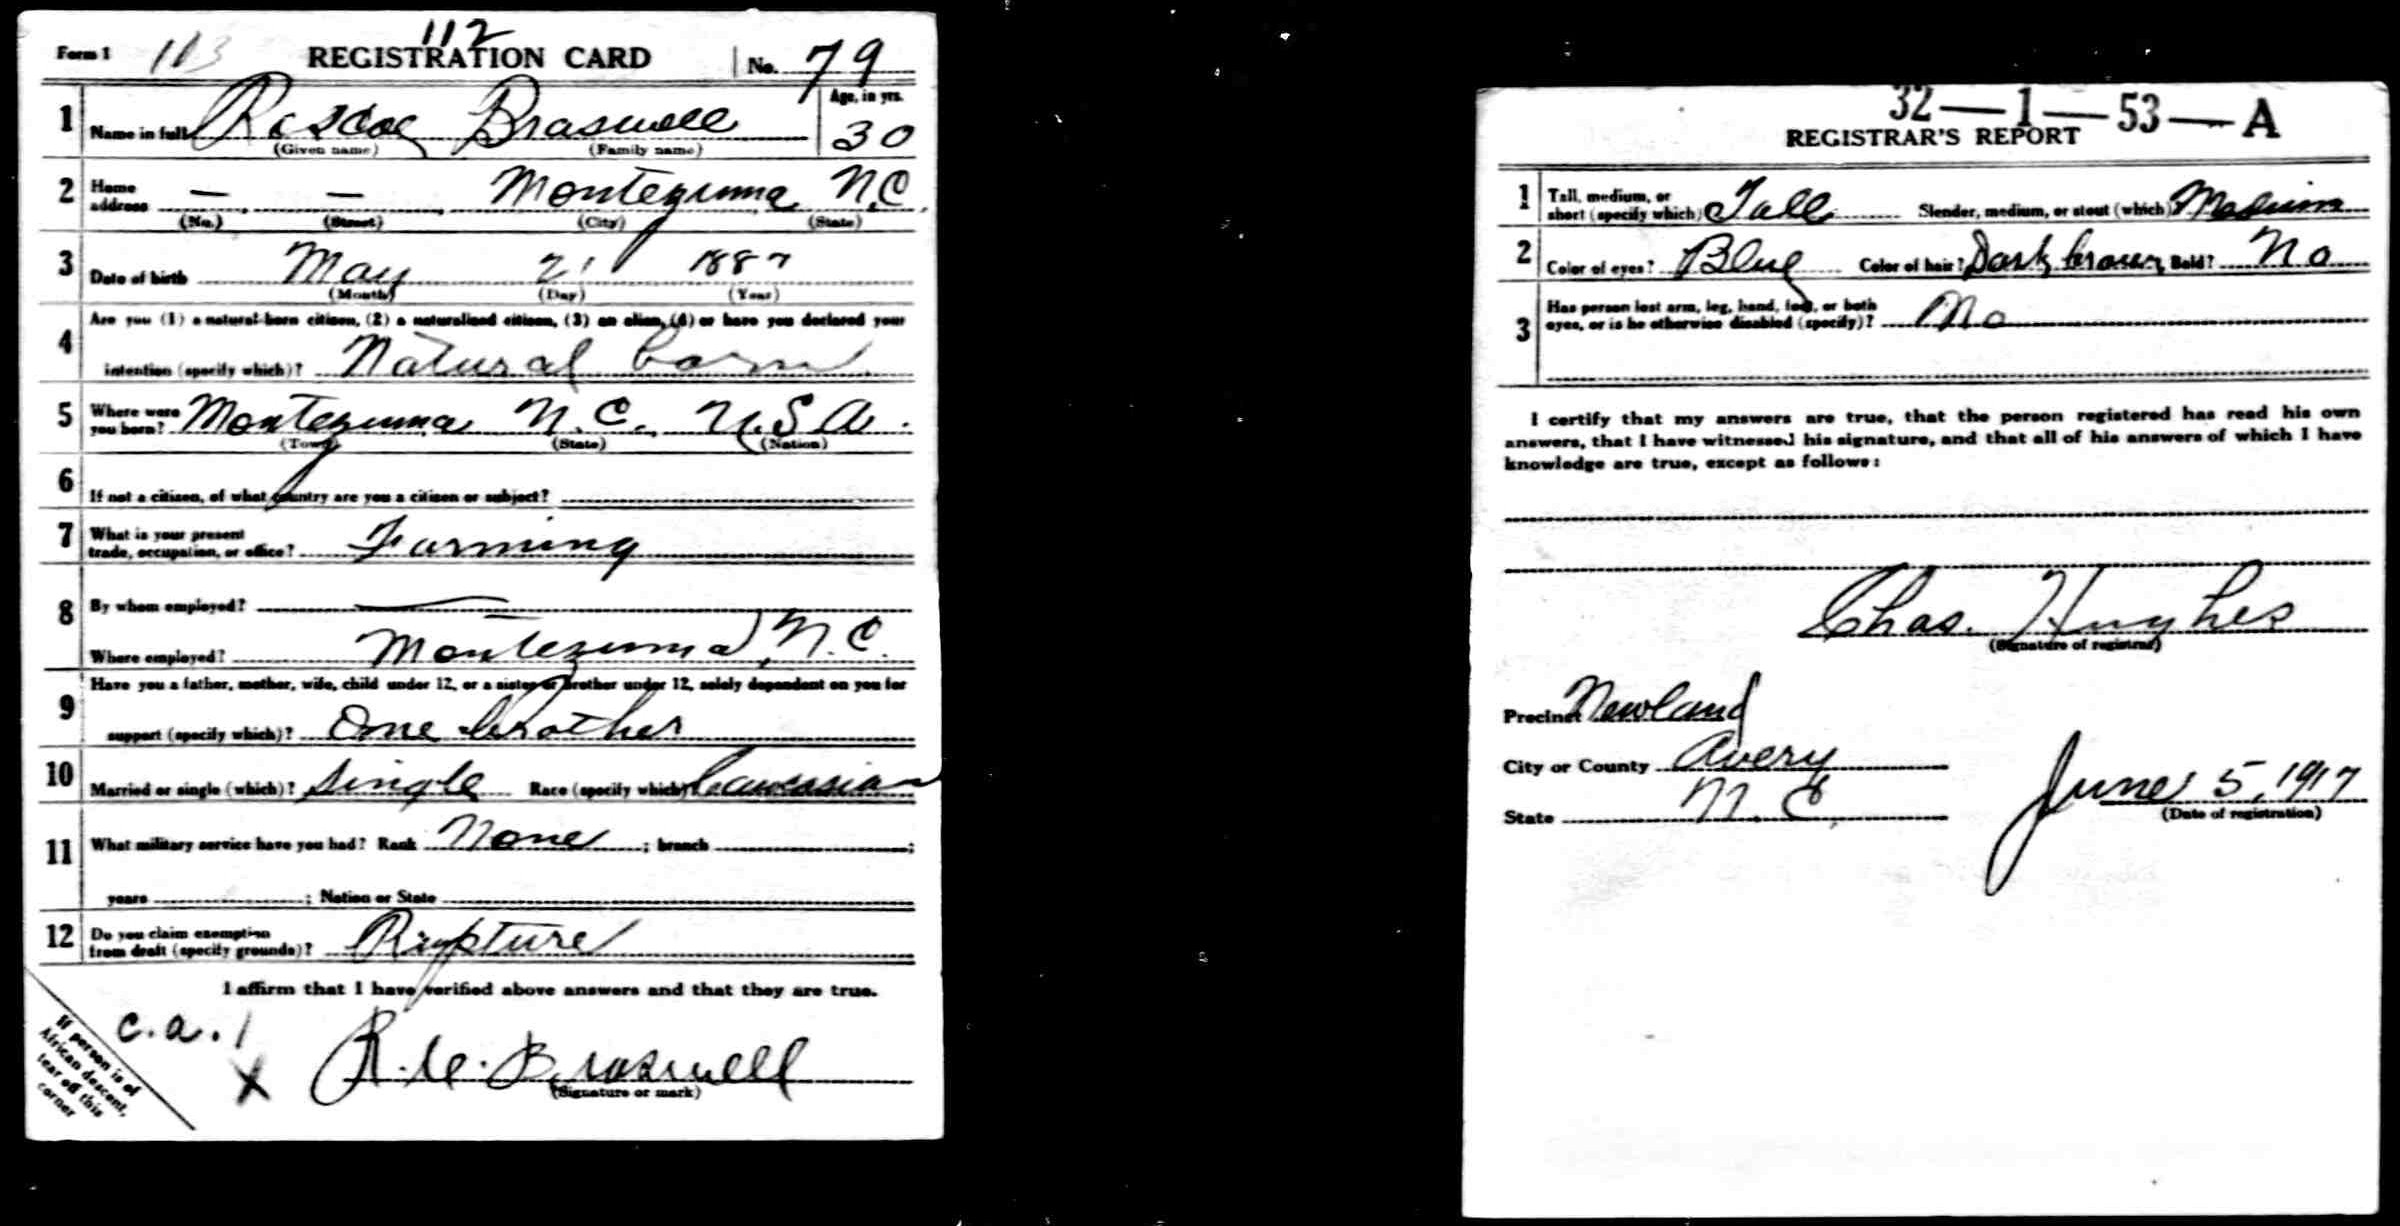 112
Form 1 113 REGISTRATION CARD No. 79
1 Name in full Roscoe Braswell Age, in yrs. 30
(Given name) (Family name)
2 Home address — — Montezuma N.C.
(No.) (Street) (City) (State)
3 Date of birth May 21 1887
(Month) (Day) (Year)
4 Are you (1) a natural-born citizen, (2) a naturalized citizen, (3) an alien, (4) or have you declared your
intention (specify which)? Natural born
5 Where were you born? Montezuma N.C. U.S.A.
(Town) (State) (Nation)
6 If not a citizen, of what country are you a citizen or subject?
7 What is your present trade, occupation, or office? Farming
8 By whom employed? —
Where employed? Montezuma, N.C.
9 Have you a father, mother, wife, child under 12, or a sister or brother under 12, solely dependent on you for
support (specify which)? One brother
10 Married or single (which)? Single Race (specify which)? Caucasian
11 What military service have you had? Rank None ; branch ;
years ; Nation or State
12 Do you claim exemption from draft (specify grounds)? Rupture
I affirm that I have verified above answers and that they are true.
c.a. 1
X R. Braswell
(Signature or mark)
If person is of
African descent,
tear off this
corner
32—1—53—A
REGISTRAR'S REPORT
1 Tall, medium, or short (specify which)? Tall Slender, medium, or stout (which)? Medium
2 Color of eyes? Blue Color of hair? Dark brown Bald? No
3 Has person lost arm, leg, hand, foot, or both
eyes, or is he otherwise disabled (specify)? No
I certify that my answers are true, that the person registered has read his own
answers, that I have witnessed his signature, and that all of his answers of which I have
knowledge are true, except as follows:
Chas. Hughes
(Signature of registrar)
Precinct Newland
City or County Avery
State N.C.
June 5, 1917
(Date of registration)